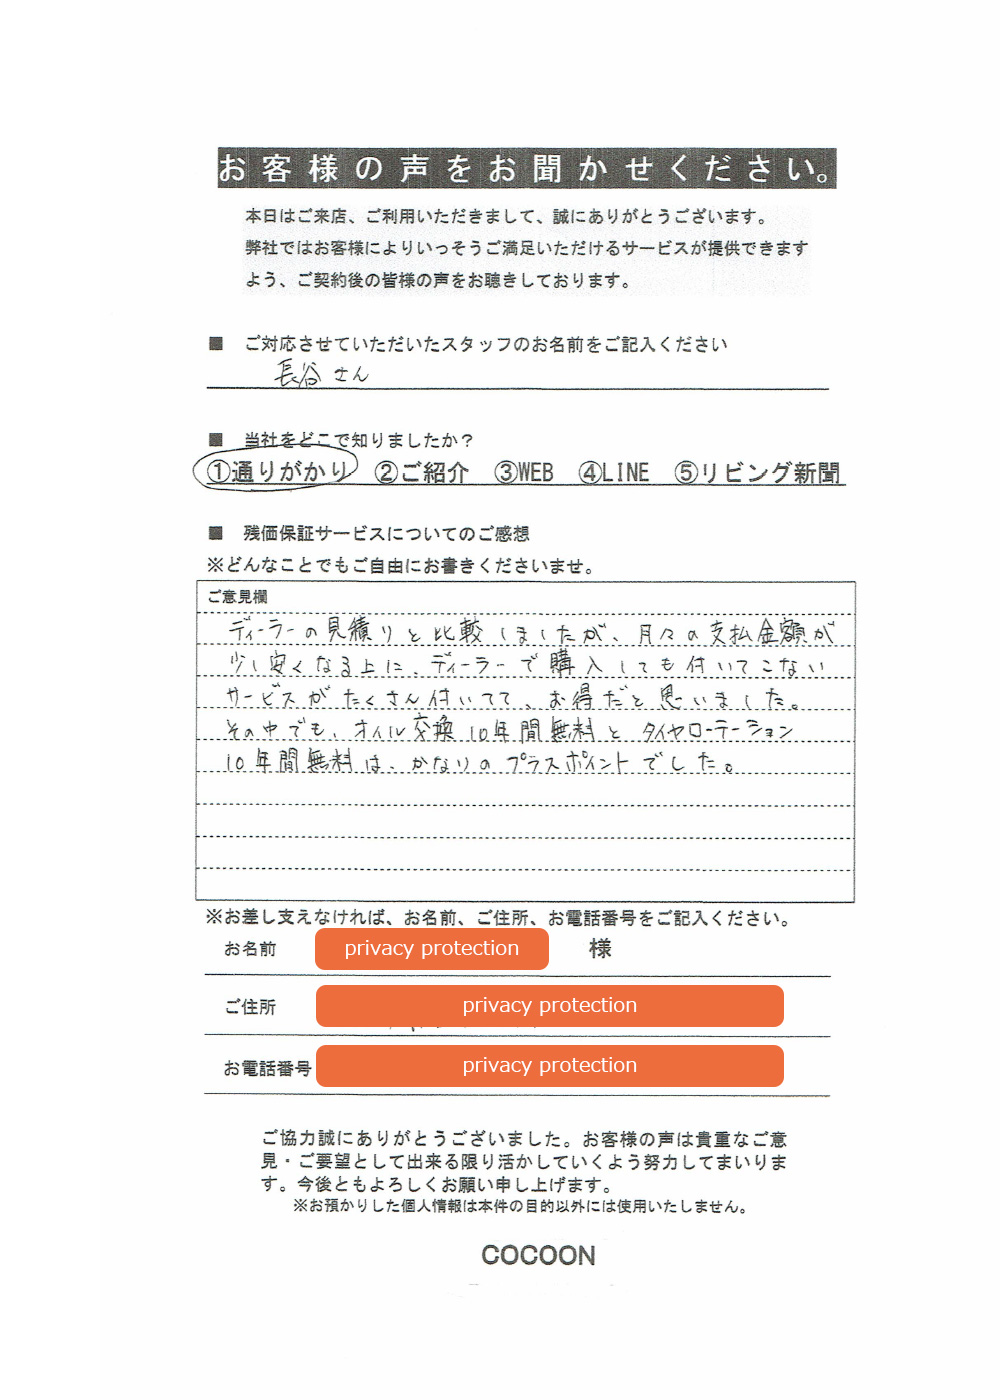 お客様の声をお聞かせください。
本日はご来店、ご利用いただきまして、誠にありがとうございます。
弊社ではお客様によりいっそうご満足いただけるサービスが提供できます
よう、ご契約後の皆様の声をお聴きしております。
■ ご対応させていただいたスタッフのお名前をご記入ください
長谷さん
■ 当社をどこで知りましたか？
①通りがかり ②ご紹介 ③WEB ④LINE ⑤リビング新聞
■ 残価保証サービスについてのご感想
※どんなことでもご自由にお書きくださいませ。
ご意見欄
ディーラーの見積りと比較しましたが、月々の支払金額が
少し安くなる上に、ディーラーで購入しても付いてこない
サービスがたくさん付いてて、お得だと思いました。
その中でも、オイル交換10年間無料とタイヤローテーション
10年間無料は、かなりのプラスポイントでした。
※お差し支えなければ、お名前、ご住所、お電話番号をご記入ください。
お名前 privacy protection 様
ご住所 privacy protection
お電話番号 privacy protection
ご協力誠にありがとうございました。お客様の声は貴重なご意
見・ご要望として出来る限り活かしていくよう努力してまいりま
す。今後ともよろしくお願い申し上げます。
※お預かりした個人情報は本件の目的以外には使用いたしません。
COCOON